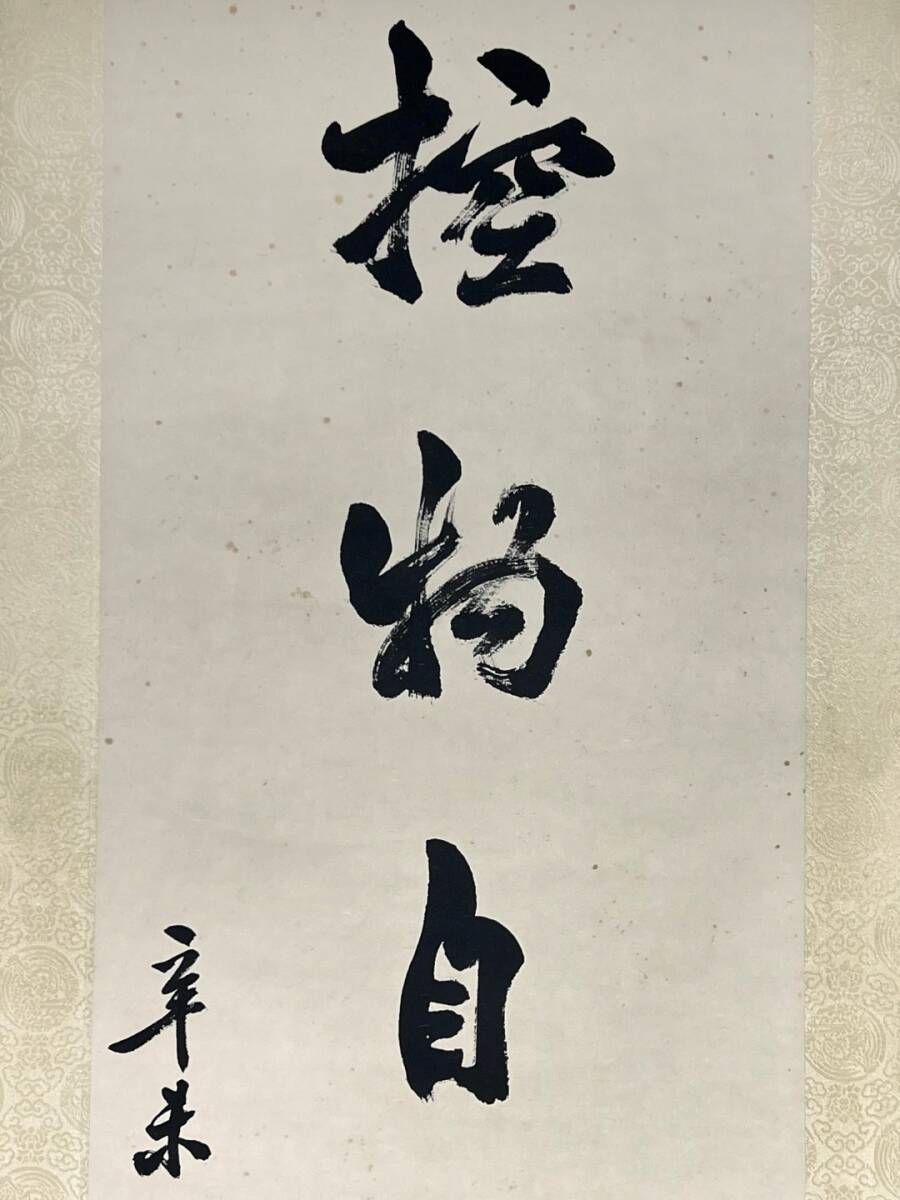 控物自
辛未